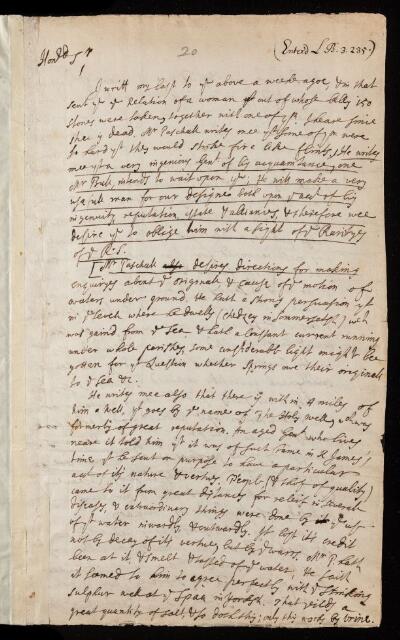 20
(Entered L.B. 3. 235.)
Hon'd Sr
I writt my last to ye above a weeke agoe, & in that
sent ye ye Relation of a woman yt out of whose belly 150
stones were taken, together with one of ym. I heare since
shee is dead. Mr Paschall writes mee yt some of ym were
so hard yt they would strike fire like flints. He writes
mee yt a very ingenious Gent of his acquaintance, one
Mr Pool, intends to wait upon ye; He will make a very
usefull man for our designes both upon ye acct of his
ingenuity, reputation, estate & alliances, & therefore wee
desire ye to oblige him with a sight of ye Rarityes
of ye R. S.
Mr Paschall desires directions for making
enquiryes about ye originall & cause of ye motion of
waters under ground. He hath a strong perswasion yt
in ye Levell where he dwells (Chedzey in Sommersetsh.) wch
was gained from ye Sea & hath a constant current running
under whole parishes, some considerable light might bee
gotten for ye Question whether Springs owe their originall
to ye Sea &c.
He writes mee also that there is within 4 miles of
him a well, yt goes by ye name of ye Holy well, & was
formerly of great reputation. An aged Gent who lives
neare it told him yt it was of such fame in K. James's
time yt he sent on purpose to have a particular
acct of its nature & vertues. People (& those of quality)
came to it from great distances for releif in severall
diseases, & extraordinary things were done by ye use
of ye water inwardly & outwardly. It lost its credit
not by decay of its vertues but by ye warrs. Mr P. hath
been at it, & smelt & tasted of ye water; He saith
it seemed to him to agree perfectly with ye stinking
sulphur well at ye Spaw in Yorksh. That yields a
great quantity of salt & so doth this; only this works by urine.